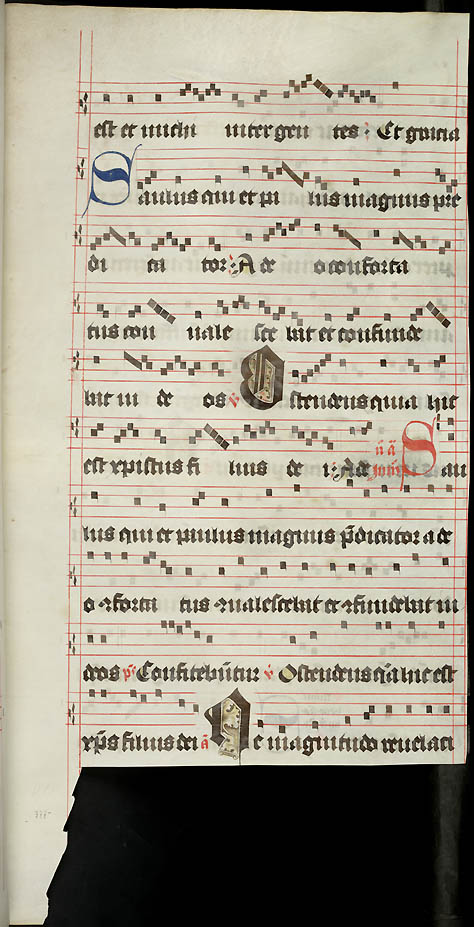 est et michi inter gen tes · Et gratia
Saulus qui et pau lus magnus pre
di ca tor · A deo o conforta
tus con uale sce bat et confunde
bat iu deos ℣ Ostendens quia hic
est xpistus fi lius de i · A de Sau
lus qui et paulus magnus p̄dicator a de
o ꝯforta tus ꝯualescebat et ꝯfundebat iu
deos ps Confitebūtur ℣ Ostendens q̄a hic est
xp̄s filius dei ā Ne magnitudo reuelaci